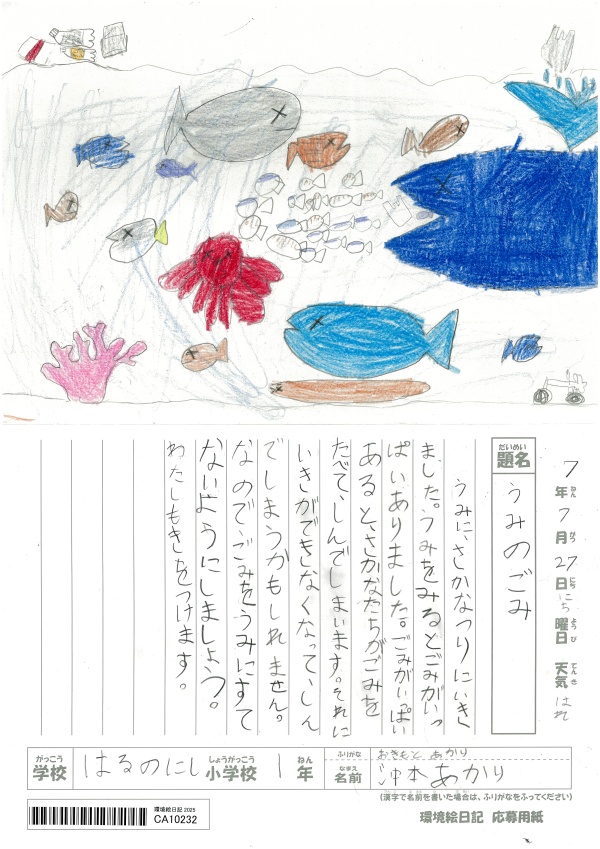 7年ねん7月がつ27日にち にち曜日ようび 天気てんき はれ
題名だいめい うみのごみ
うみに、さかなつりにいき
ました。うみをみるとごみがいっ
ぱいありました。ごみがいっぱい
あると、さかなたちがごみを
たべて、しんでしまいます。それに
いきができなくなって、しん
でしまうかもしれません。
なので、ごみをうみにすて
ないようにしましょう。
わたしもきをつけます。
学校がっこう はるのにし小学校しょうがっこう 1年ねん
ふりがな おきもと あかり
名前なまえ 沖本 あかり
(漢字で名前を書いた場合は、ふりがなをふってください)
環境絵日記 2025
CA10232
環境絵日記 応募用紙